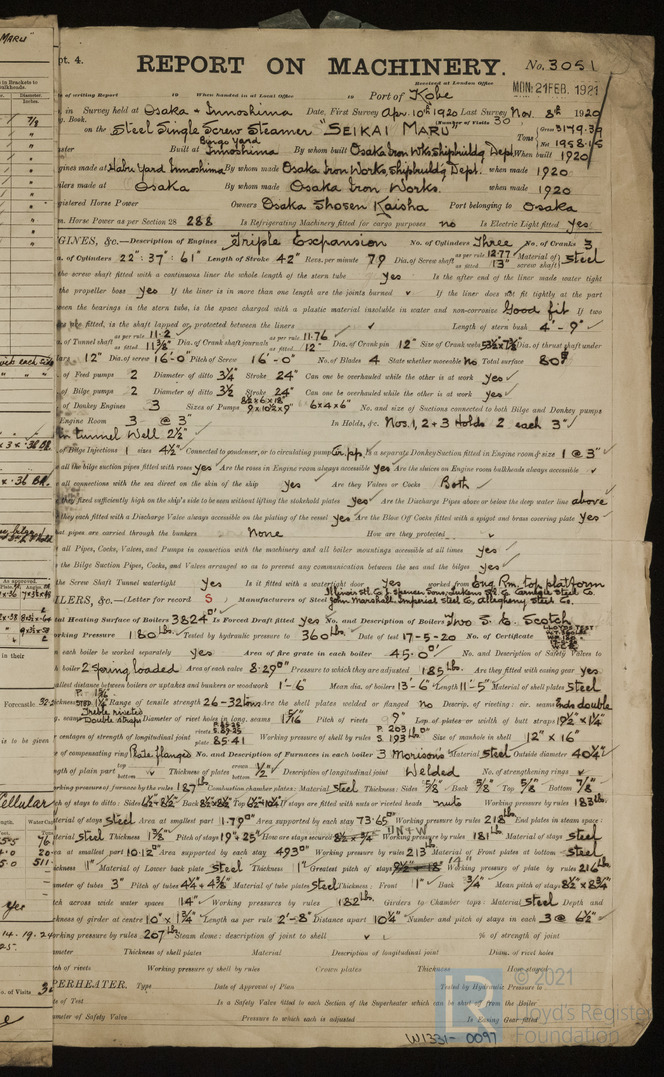 pt. 4.
REPORT ON MACHINERY.
No. 3051
Received at London Office
MON. 21 FEB. 1921
of writing Report When handed in at Local Office Port of Kobe
in Survey held at Osaka & Innoshima Date, First Survey Apr. 10th 1920 Last Survey Nov. 8th 1920
(Number of Visits 30
on the Steel Single Screw Steamer "SEIKAI MARU"
Tons Gross 3149.39
Net 1958.15
Built at Bingo Yard Innoshima By whom built Osaka Iron Wks, Shipbuildg Dept. When built 1920
gines made at Habu Yard Innoshima By whom made Osaka Iron Works, Shipbuildg Dept. when made 1920
ilers made at Osaka By whom made Osaka Iron Works. when made 1920
gistered Horse Power Owners Osaka Shosen Kaisha Port belonging to Osaka
m. Horse Power as per Section 28 288 Is Refrigerating Machinery fitted for cargo purposes no Is Electric Light fitted yes
GINES, &c.—Description of Engines Triple Expansion No. of Cylinders Three No. of Cranks 3
a. of Cylinders 22" : 37" : 61" Length of Stroke 42" Revs. per minute 79 Dia. of Screw shaft as per rule 12.77 as fitted 13" Material of screw shaft Steel
the screw shaft fitted with a continuous liner the whole length of the stern tube yes Is the after end of the liner made water tight
the propeller boss yes If the liner is in more than one length are the joints burned If the liner does not fit tightly at the part
ween the bearings in the stern tube, is the space charged with a plastic material insoluble in water and non-corrosive Good fit If two
are fitted, is the shaft lapped or protected between the liners Length of stern bush 4'-9"
a. of Tunnel shaft as per rule 11.2 as fitted 11 3/8" Dia. of Crank shaft journals as per rule 11.76 as fitted 12" Dia. of Crank pin 12" Size of Crank webs Dia. of thrust shaft under
lars 12" Dia. of screw 16'-0" Pitch of Screw 16'-0" No. of Blades 4 State whether moveable no Total surface 80
of Feed pumps 2 Diameter of ditto 3 1/4" Stroke 24" Can one be overhauled while the other is at work yes
of Bilge pumps 2 Diameter of ditto 3 1/2 Stroke 24" Can one be overhauled while the other is at work yes
of Donkey Engines 3 Sizes of Pumps 8 1/2 x 6 x 18" 9 x 10 1/2 x 9" 6 x 4 x 6" No. and size of Suctions connected to both Bilge and Donkey pumps
Engine Room 3 @ 3" In Holds, &c. Nos. 1, 2 & 3 Holds 2 each 3"
In tunnel Well 2 1/2"
of Bilge Injections 1 sizes 4 1/2" Connected to condenser, or to circulating pump Is a separate Donkey Suction fitted in Engine room & size 1 @ 3"
all the bilge suction pipes fitted with roses yes Are the roses in Engine room always accessible yes Are the sluices on Engine room bulkheads always accessible
all connections with the sea direct on the skin of the ship yes Are they Valves or Cocks Both
they fixed sufficiently high on the ship's side to be seen without lifting the stokehold plates yes Are the Discharge Pipes above or below the deep water line above
they each fitted with a Discharge Valve always accessible on the plating of the vessel yes Are the Blow Off Cocks fitted with a spigot and brass covering plate yes
at pipes are carried through the bunkers None How are they protected
all Pipes, Cocks, Valves, and Pumps in connection with the machinery and all boiler mountings accessible at all times yes
the Bilge Suction Pipes, Cocks, and Valves arranged so as to prevent any communication between the sea and the bilges yes
the Screw Shaft Tunnel watertight yes Is it fitted with a watertight door yes worked from Eng. Rm. top platform
ILERS, &c.—(Letter for record S) Manufacturers of Steel Illinois Stl. Co. J. Spencer Sons, Lukens Stl. Co. Carnegie Steel Co. John Marshall, Imperial Steel Co. Allegheny Steel Co.
tal Heating Surface of Boilers 3824 Is Forced Draft fitted yes No. and Description of Boilers Two S. E. Scotch
rking Pressure 180 lbs Tested by hydraulic pressure to 360 lbs. Date of test 17-5-20 No. of Certificate
LLOYDS TEST
n each boiler be worked separately yes Area of fire grate in each boiler 45.0 No. and Description of Safety Valves to
h boiler 2 Spring loaded Area of each valve 8.29 Pressure to which they are adjusted 185 lbs. Are they fitted with easing gear yes
allest distance between boilers or uptakes and bunkers or woodwork 1'-6" Mean dia. of boilers 13'-6" Length 11'-5" Material of shell plates Steel
ickness Range of tensile strength 26-32 tons Are the shell plates welded or flanged no Descrip. of riveting : cir. seams Ends double
g. seams Treble riveted Double Straps Diameter of rivet holes in long. seams 1 5/16 Pitch of rivets 9" Lap of plates or width of butt straps 19 1/2" x 1 1/4"
centages of strength of longitudinal joint plate 85.41 Working pressure of shell by rules P. 203 lbs S. 193 lbs Size of manhole in shell 12" x 16"
e of compensating ring Plate flanged No. and Description of Furnaces in each boiler 3 Morisons Material Steel Outside diameter 40 1/4"
ngth of plain part top bottom Thickness of plates crown bottom 1/2" Description of longitudinal joint Welded No. of strengthening rings
rking pressure of furnace by the rules 187 lbs Combustion chamber plates: Material Steel Thickness: Sides 5/8" Back 5/8" Top 5/8" Bottom 7/8"
ch of stays to ditto: Sides Back Top If stays are fitted with nuts or riveted heads nuts Working pressure by rules 183 lbs.
terial of stays Steel Area at smallest part 1.79 Area supported by each stay 73.65 Working pressure by rules 218 lbs End plates in steam space:
terial Steel Thickness Pitch of stays 19" x 25" How are stays secured DN + W Working pressure by rules 181 lbs. Material of stays Steel
ea at smallest part 10.12 Area supported by each stay 493 Working pressure by rules 213 lbs. Material of Front plates at bottom Steel
ickness 1" Material of Lower back plate Steel Thickness 1" Greatest pitch of stays 14" Working pressure of plate by rules 216 lbs
ameter of tubes 3" Pitch of tubes 4 1/4 x 4 3/8" Material of tube plates Steel Thickness: Front 1" Back 3/4" Mean pitch of stays 8 1/2" x 8 3/4"
tch across wide water spaces 14" Working pressures by rules 182 lbs Girders to Chamber tops: Material Steel Depth and
ickness of girder at centre 10" x 1 3/4" Length as per rule 2'-8" Distance apart 10 1/4" Number and pitch of stays in each 3 @ 6 1/2"
orking pressure by rules 207 lbs Steam dome: description of joint to shell % of strength of joint
ameter Thickness of shell plates Material Description of longitudinal joint Diam. of rivet holes
tch of rivets Working pressure of shell by rules Crown plates Thickness How stayed
PERHEATER. Type Date of Approval of Plan Tested by Hydraulic Pressure to
te of Test Is a Safety Valve fitted to each Section of the Superheater which can be shut off from the Boiler
ameter of Safety Valve Pressure to which each is adjusted Is Easing Gear fitted
W1331-0097
© 2021
Lloyd's Register
Foundation